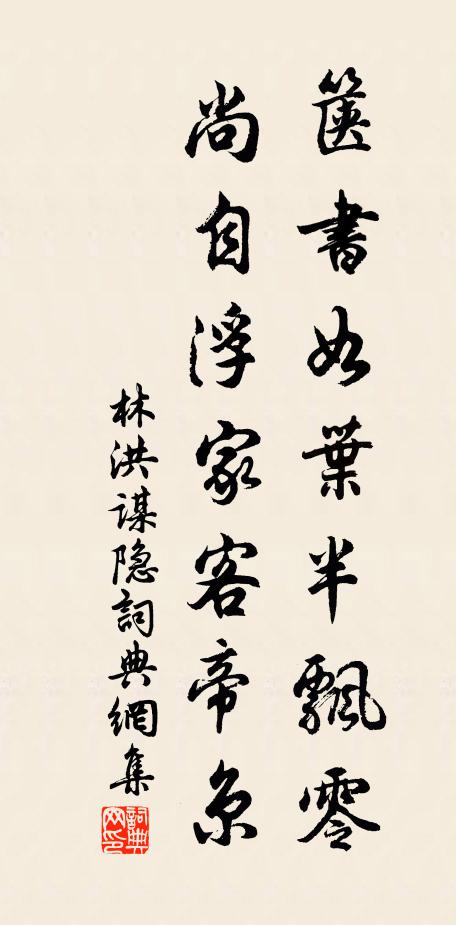 篋書如葉半飄零
尚自浮家客帝京
林洪谋隐詞典網集
詞典網印